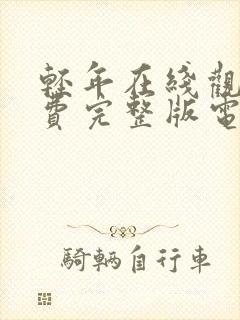 輕年在綫觀
費完整版電
騎輛自行車